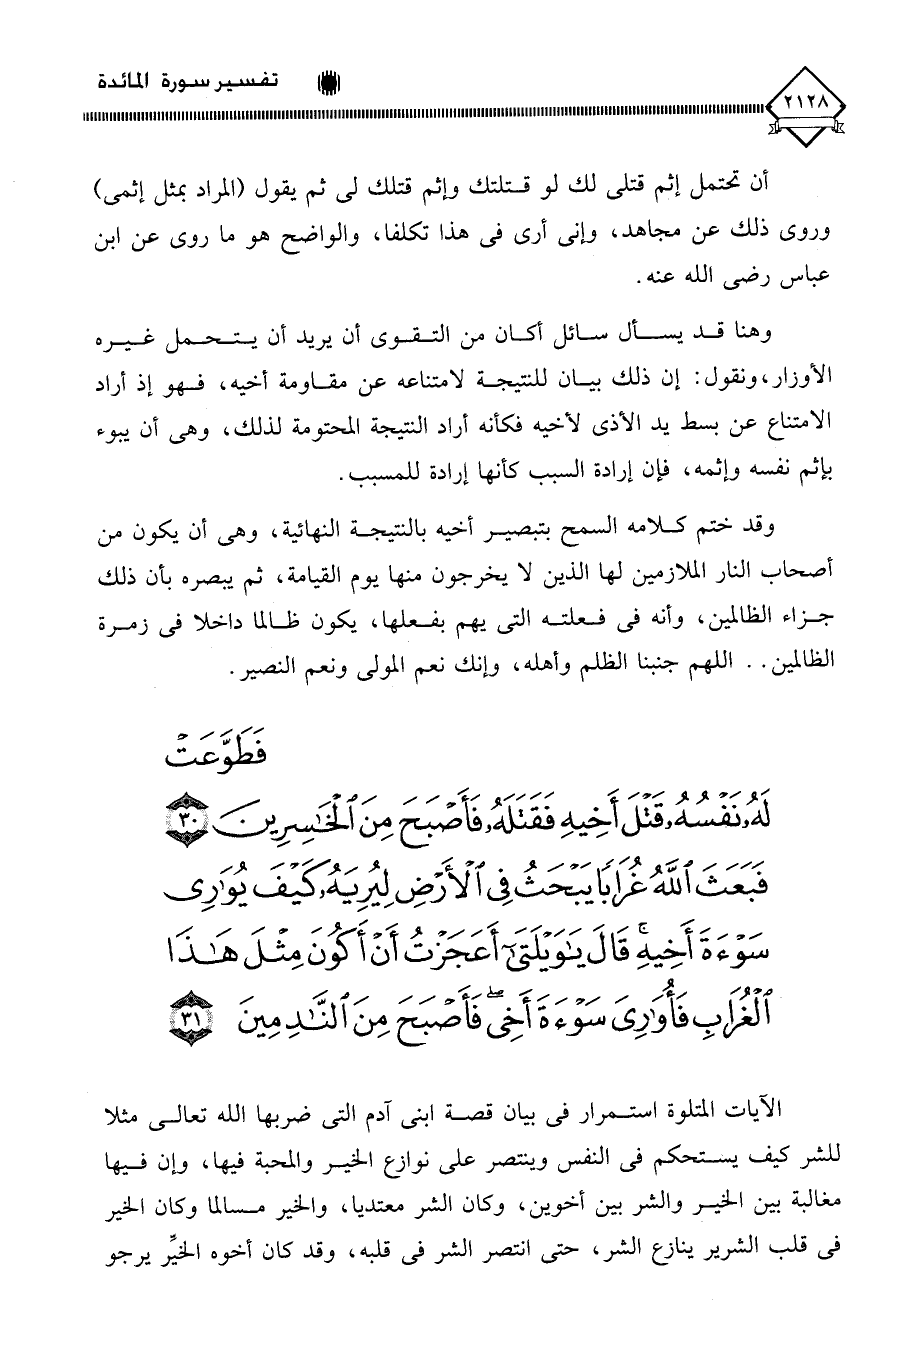 ٢١٢٨
تفسير سورة المائدة
أن تحتمل إثم قتلى لك لو قـتلتك وإثم قتلك لى ثم يقول (المراد بمثل إثمى)
وروى ذلك عن مجاهد، وإنى أرى فى هذا تكلفا، والواضح هو ما روى عن ابن
عباس رضى الله عنه.
وهنا قد يسأل سائل أكان من التقوى أن يريد أن يتحمل غيره
الأوزار،ونقول: إن ذلك بيان للنتيجة لامتناعه عن مقاومة أخيه، فهو إذ أراد
الامتناع عن بسط يد الأذى لأخيه فكأنه أراد النتيجة المحتومة لذلك، وهى أن يبوء
بإثم نفسه وإثمه، فإن إرادة السبب كأنها إرادة للمسبب.
وقد ختم كلامه السمح بتبصير أخيه بالنتيجة النهائية، وهى أن يكون من
أصحاب النار الملازمين لها الذين لا يخرجون منها يوم القيامة، ثم يبصره بأن ذلك
جزاء الظالمين، وأنه فى فعلته التى يهم بفعلها، يكون ظالما داخلا فى زمرة
الظالمين.. اللهم جنبنا الظلم وأهله، وإنك نعم المولى ونعم النصير.
فَطَوَّعَتْ
لَهُۥ نَفْسُهُۥ قَتْلَ أَخِيهِ فَقَتَلَهُۥ فَأَصْبَحَ مِنَ ٱلْخَٰسِرِينَ ٣٠
فَبَعَثَ ٱللَّهُ غُرَابًا يَبْحَثُ فِى ٱلْأَرْضِ لِيُرِيَهُۥ كَيْفَ يُوَٰرِى
سَوْءَةَ أَخِيهِ ۚ قَالَ يَٰوَيْلَتَىٰٓ أَعَجَزْتُ أَنْ أَكُونَ مِثْلَ هَٰذَا
ٱلْغُرَابِ فَأُوَٰرِىَ سَوْءَةَ أَخِى ۖ فَأَصْبَحَ مِنَ ٱلنَّٰدِمِينَ ٣١
الآيات المتلوة استمرار فى بيان قصة ابنى آدم التى ضربها الله تعالى مثلا
للشر كيف يستحكم فى النفس وينتصر على نوازع الخير والمحبة فيها، وإن فيها
مغالبة بين الخير والشر بين أخوين، وكان الشر معتديا، والخير مسالما وكان الخير
فى قلب الشرير ينازع الشر، حتى انتصر الشر فى قلبه، وقد كان أخوه الخيِّر يرجو